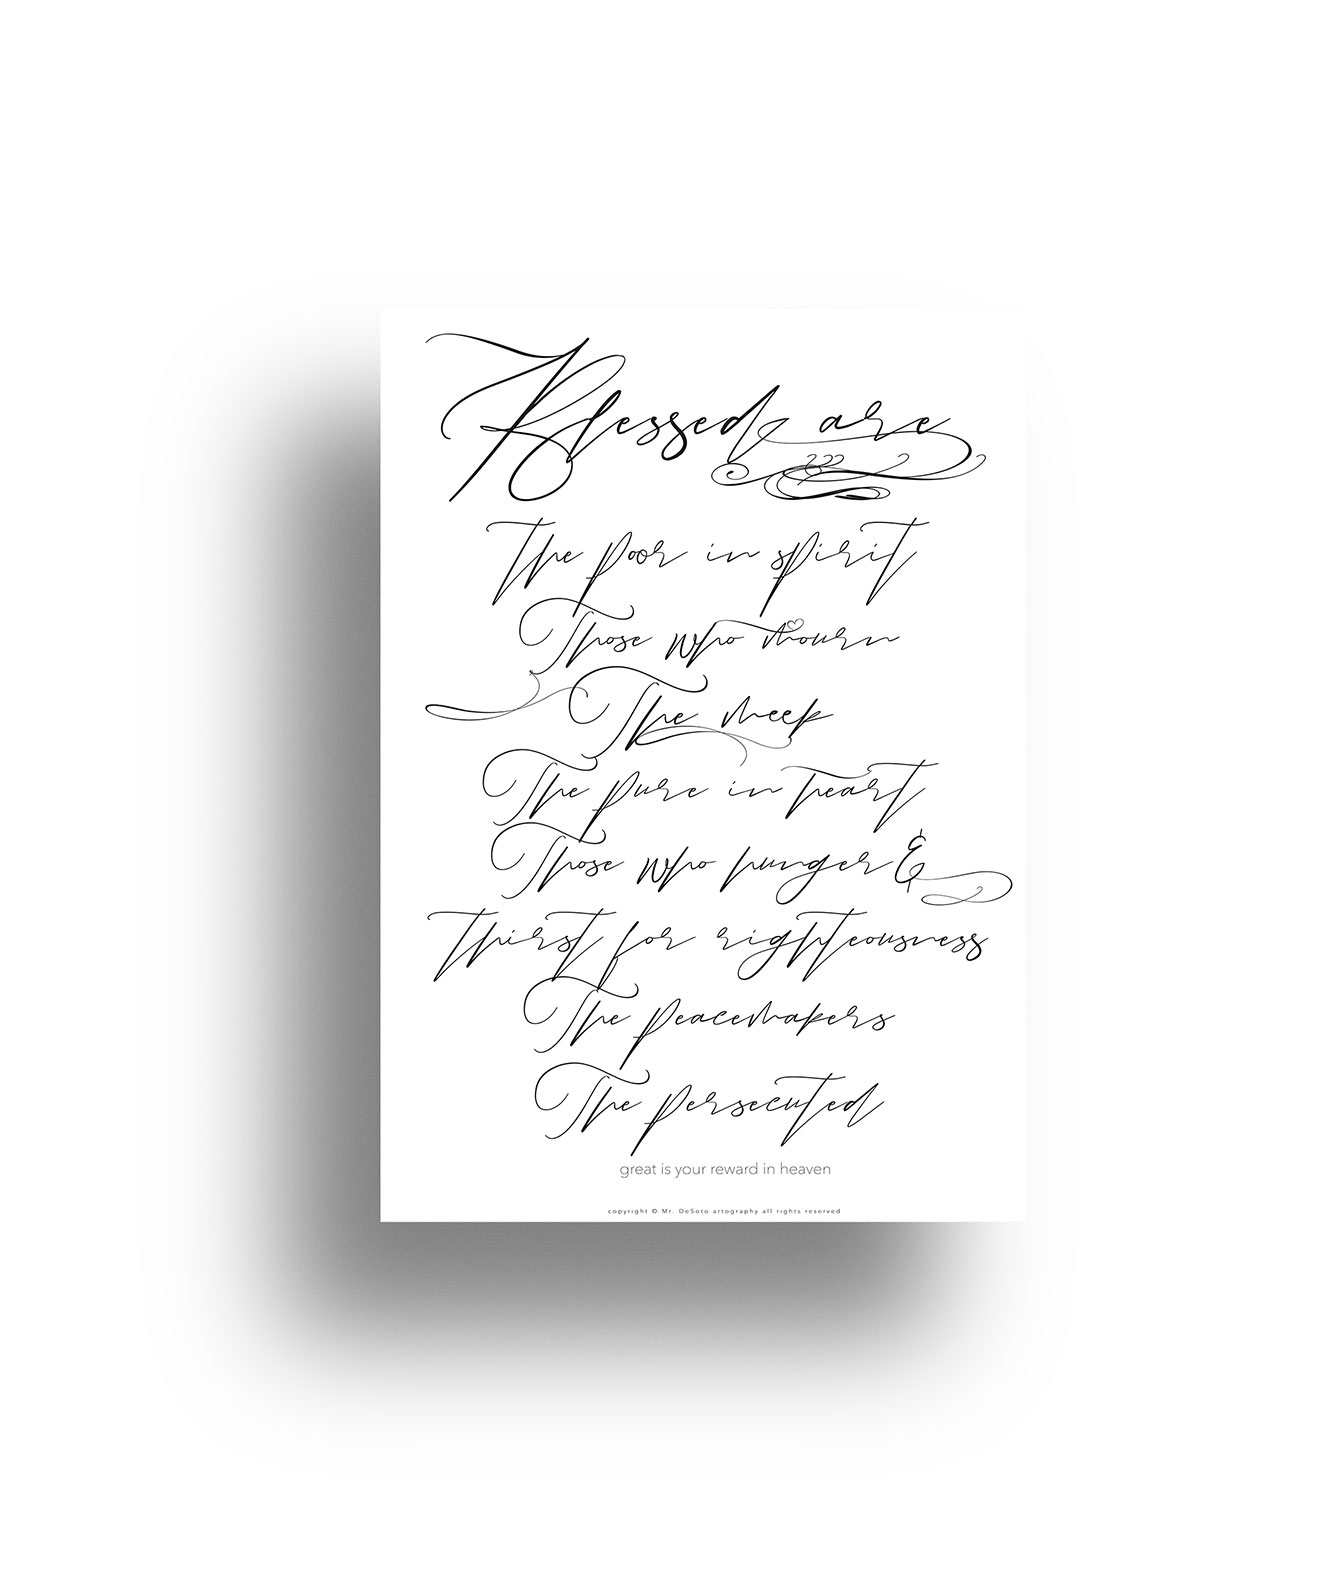 Blessed are
The poor in spirit
Those who mourn
The meek
The pure in heart
Those who hunger &
thirst for righteousness
The peacemakers
The persecuted
great is your reward in heaven
copyright © Mr. DeSoto artography all rights reserved